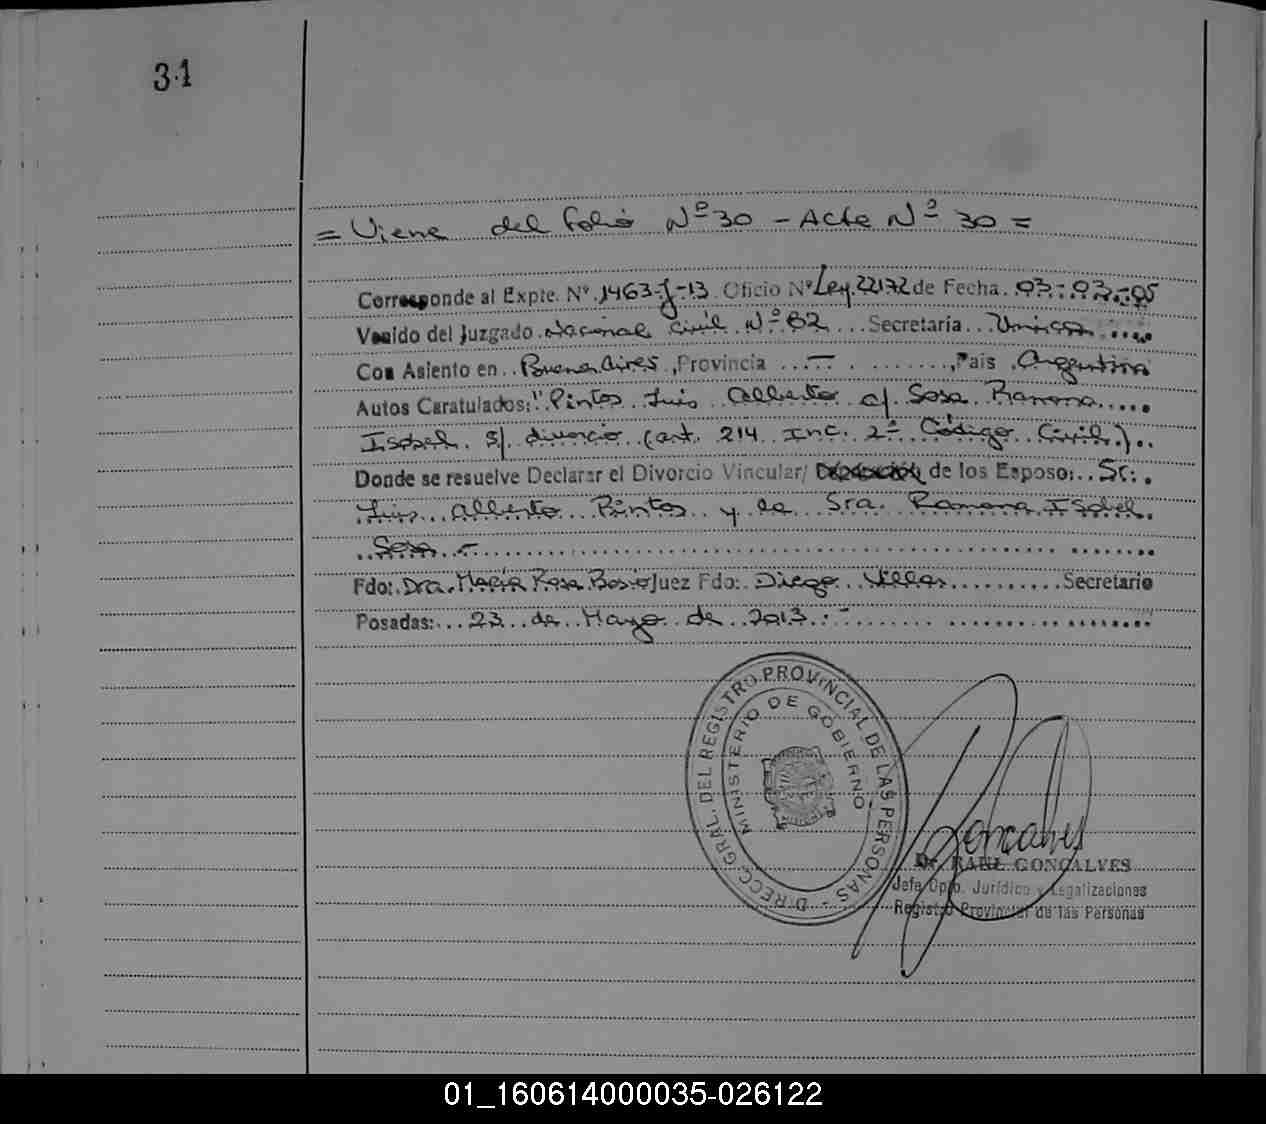 31
= Viene del folio Nº 30 - Acta Nº 30 =
Corresponde al Expte. Nº 1463-J-13 Oficio Nº Ley 22172 de Fecha 03-03-05
Venido del Juzgado Nacional Civil Nº 82 Secretaría Unica
Con Asiento en Buenos Aires, Provincia — , País Argentina
Autos Caratulados: "Pintos Luis Alberto c/ Sosa Ramona
Isabel s/ divorcio (art. 214 Inc. 2º Código Civil)
Donde se resuelve Declarar el Divorcio Vincular/ de los Esposo: Sr.
Luis Alberto Pintos y la Sra. Ramona Isabel
Sosa -
Fdo: Dra. María Rosa Bosio Juez Fdo: Diego Villar Secretario
Posadas: 23 de Mayo de 2013 : -
DIRECC. GRAL. DEL REGISTRO PROVINCIAL DE LAS PERSONAS -
MINISTERIO DE GOBIERNO
Goncalves
Dr. RAUL GONCALVES
Jefe Dpto. Jurídico y Legalizaciones
Registro Provincial de las Personas
01_160614000035-026122